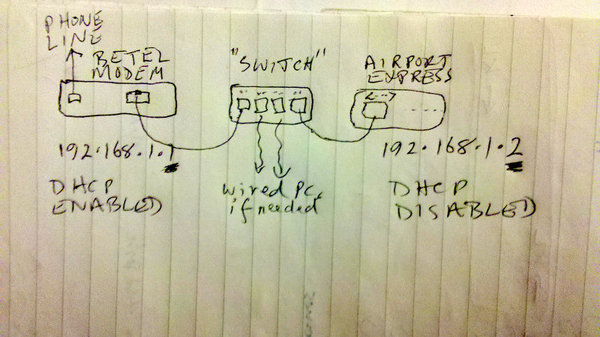 PHONE
LINE
BETEL
MODEM
"SWITCH"
AIRPORT
EXPRESS
192.168.1.1
DHCP
ENABLED
wired PC,
if needed
192.168.1.2
DHCP
DISABLED